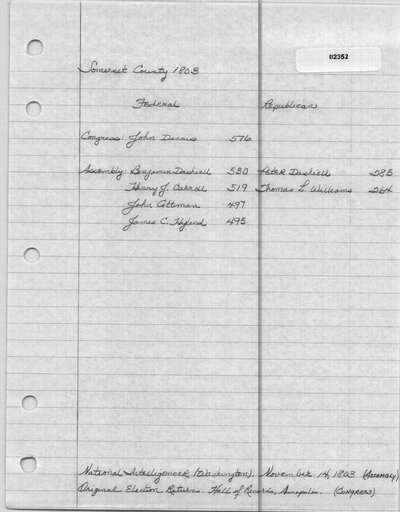 02352
Somerset County 1803
Federal Republican
Congress: John Dennis 576
Assembly: Benjamin Dashiell 530 Peter Dashiell 285
Henry J. Carroll 519 Thomas L. Williams 264
John Cottman 497
James C. Hyland 495
National Intelligencer (Washington). November 14, 1803 (Assembly)
Original Election Returns. Hall of Records, Annapolis. (Congress)